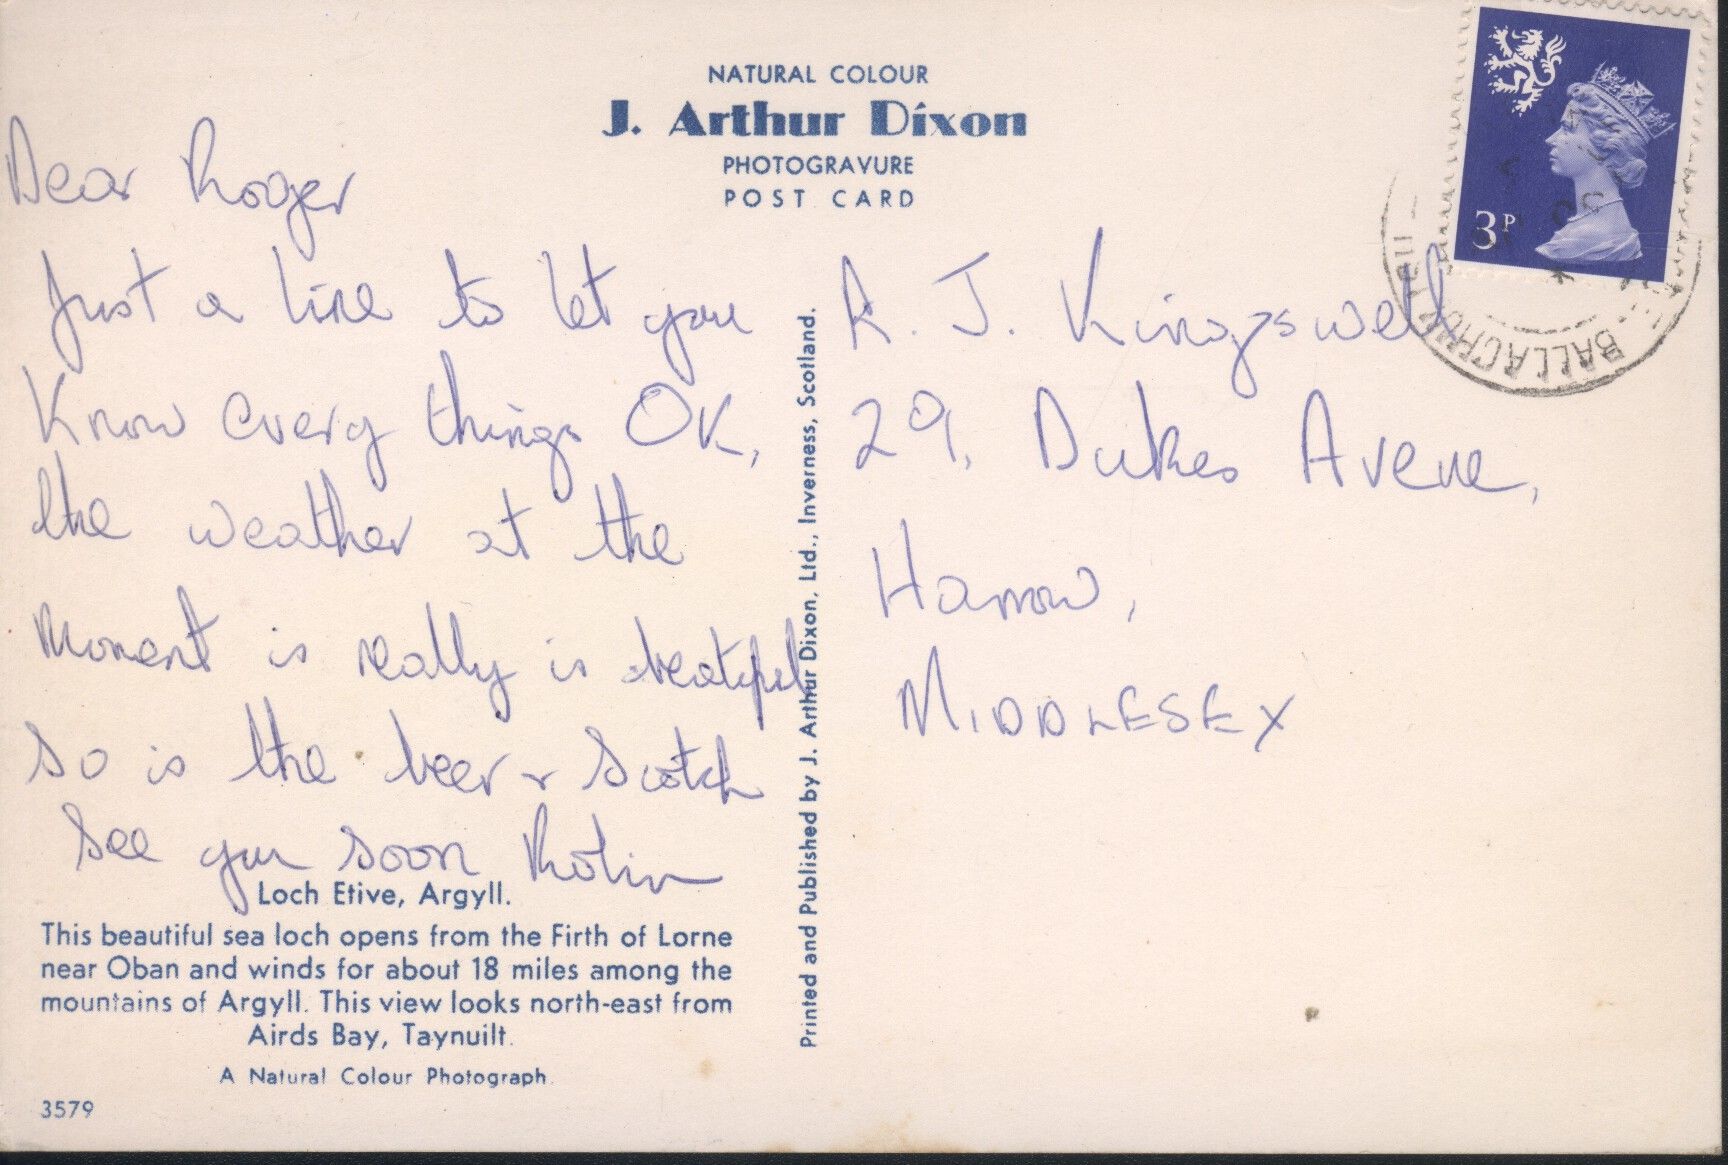 NATURAL COLOUR
J. Arthur Dixon
PHOTOGRAVURE
POST CARD
Dear Roger
Just a line to let you
Know every things OK,
the weather at the
Moment is really is beatiful
So is the beer + Scotch
See you soon Robin
Loch Etive, Argyll.
This beautiful sea loch opens from the Firth of Lorne
near Oban and winds for about 18 miles among the
mountains of Argyll. This view looks north-east from
Airds Bay, Taynuilt.
A Natural Colour Photograph
3579
Printed and Published by J. Arthur Dixon, Ltd., Inverness, Scotland.
R. J. Kingswell
29, Dukes Avene,
Harrow,
MIDDLESEX
3P